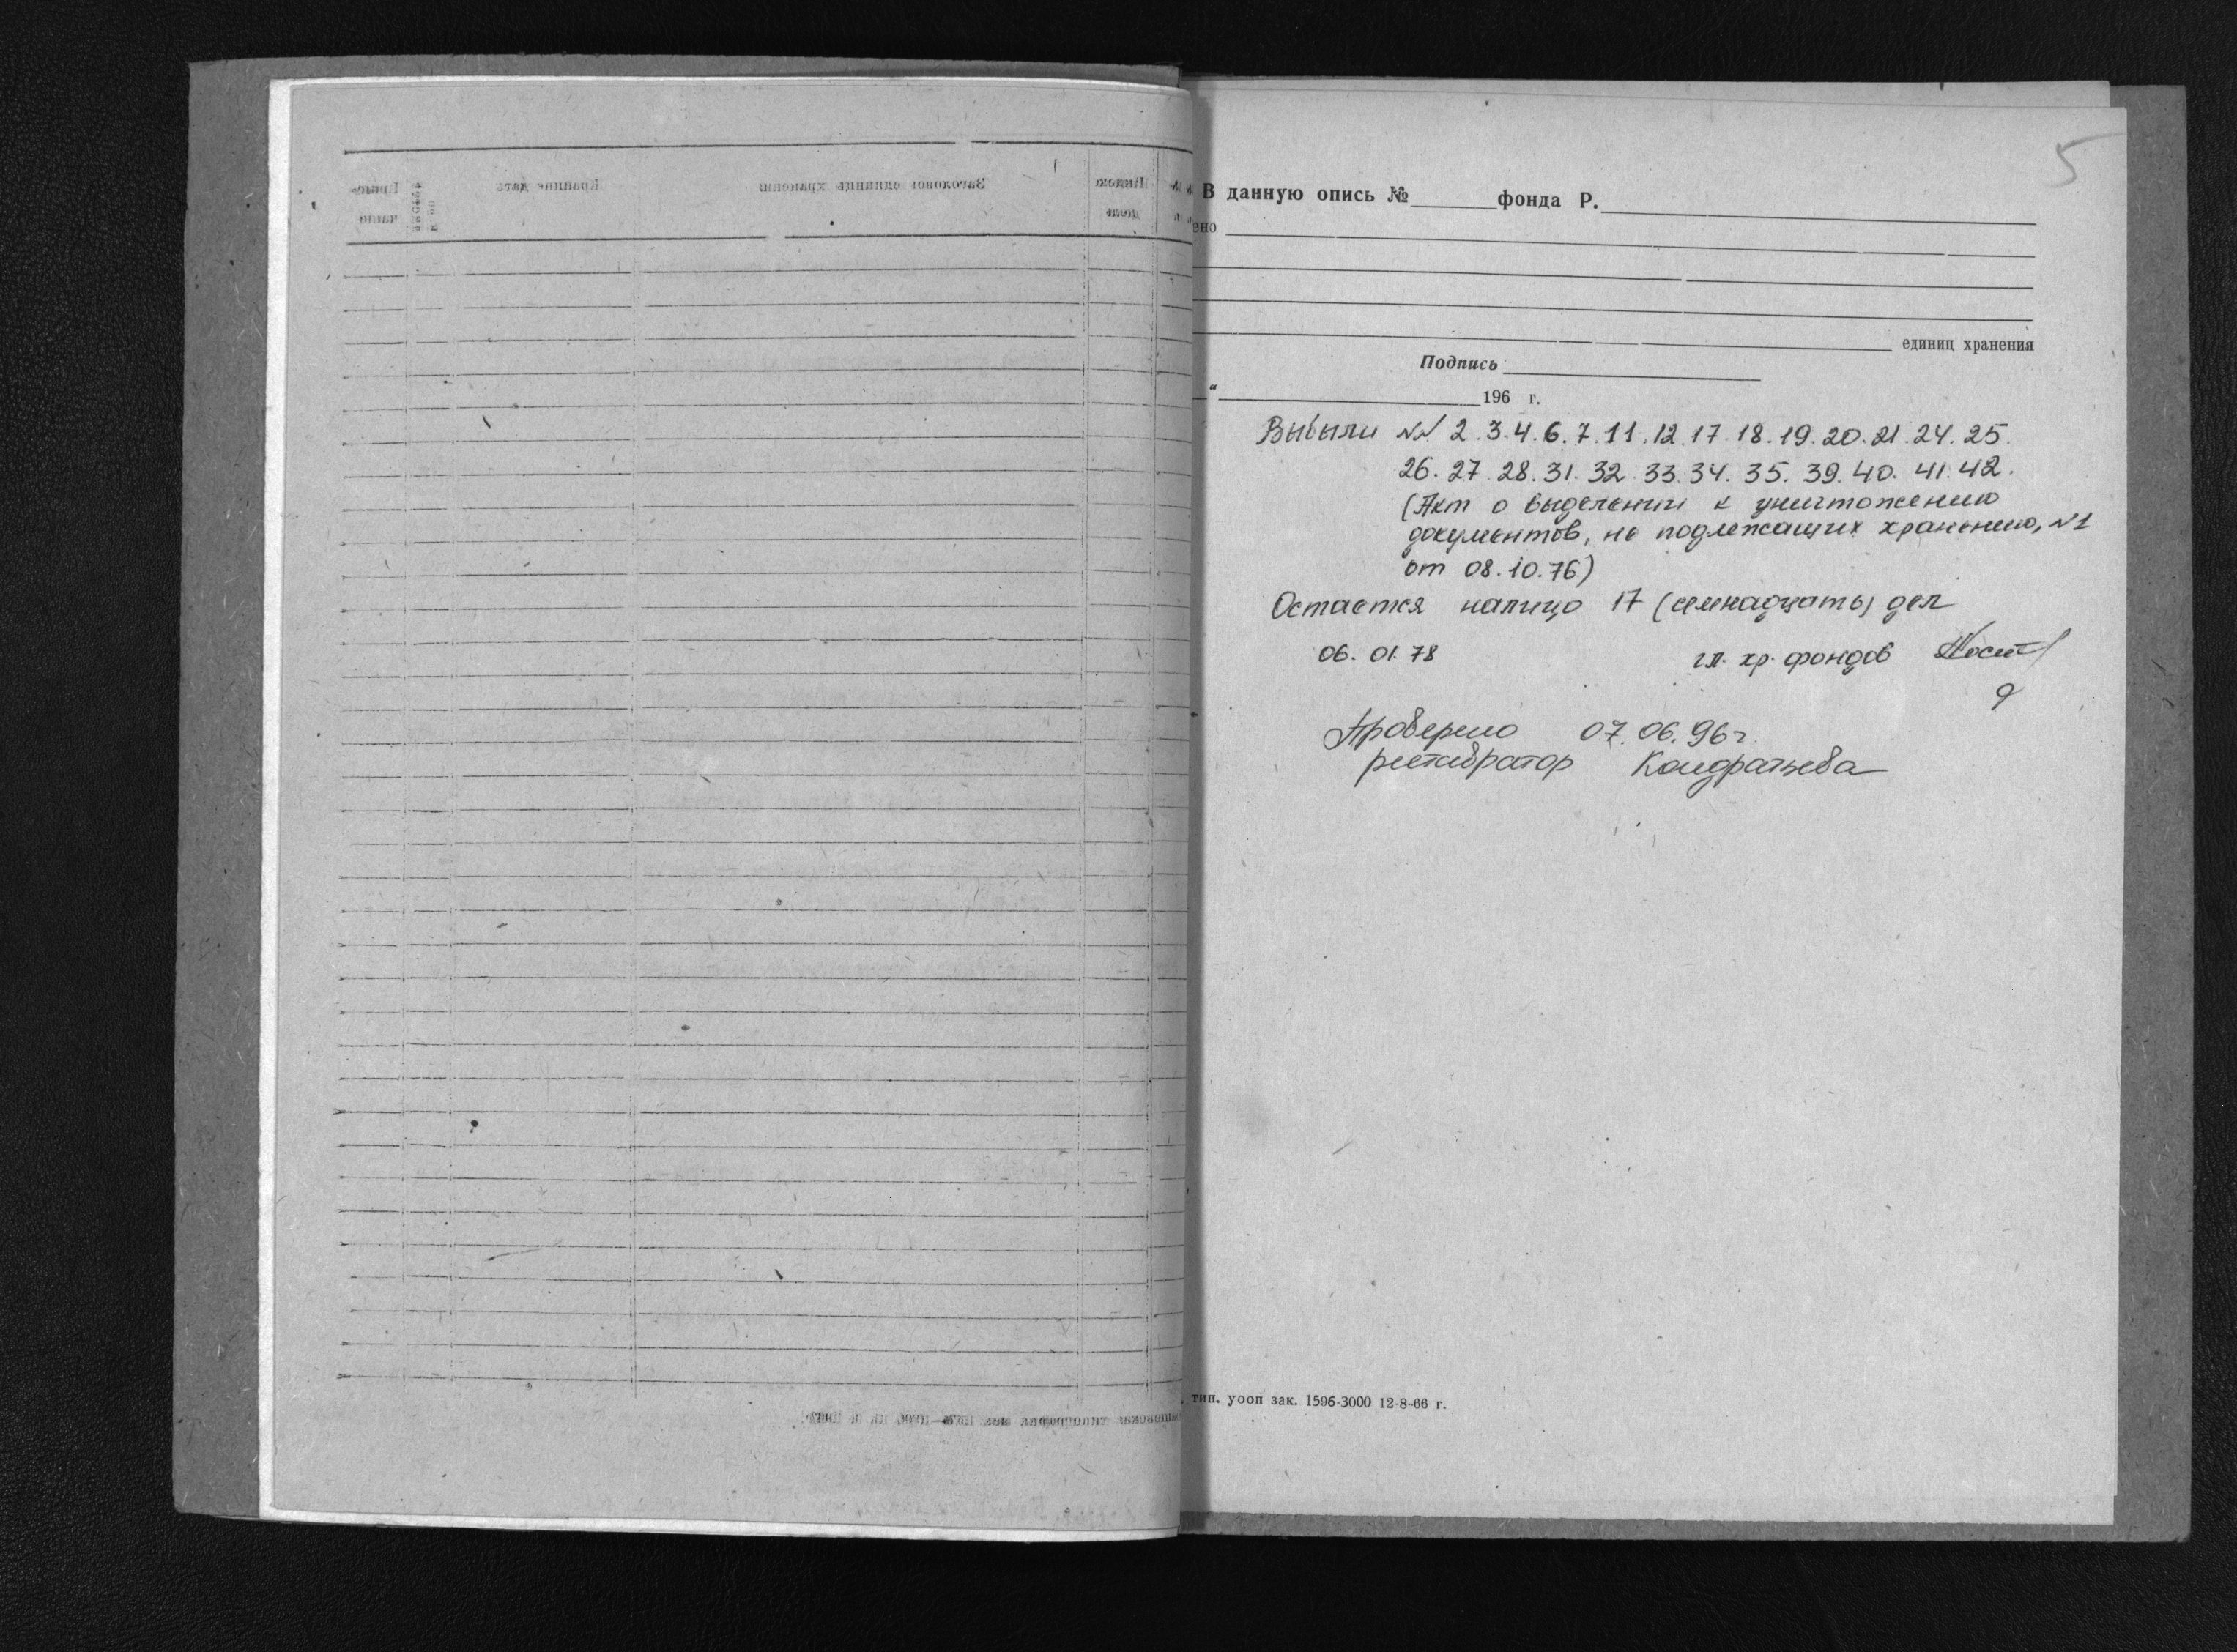 5
В данную опись № фонда Р.
ено
единиц хранения
Подпись
“ 196 г.
Выбыли NN 2.3.4.6.7.11.12.17.18.19.20.21.24.25.
26.27.28.31.32.33.34.35.39.40.41.42.
(Акт о выделении к уничтожению
документов, не подлежащих хранению, N1
от 08.10.76)
Остается налицо 17 (семнадцать) дел
06.01.78 гл. хр. фондов
Проверено 07.06.96г.
реставратор Кондратьева
тип. уооп зак. 1596-3000 12-8-66 г.
Приме-
чание
Крайние даты
Заголовок единицы хранения
Индекс
дела